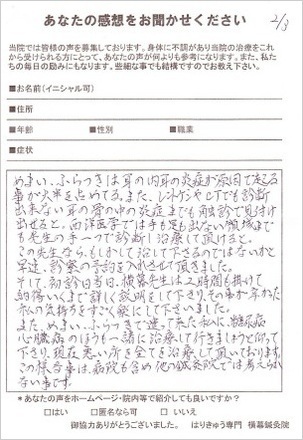 あなたの感想をお聞かせください
2/3
当院では皆様の声を募集しております。身体に不調があり当院の治療をこれ
から受けられる方にとって、あなたの声が何よりも参考になります。また、私た
ちの毎日の励みにもなります。些細な事でも結構ですのでお教え下さい。
■お名前(イニシャル可)
■住所
■年齢 ■性別 ■職業
■症状
めまい、ふらつきは耳の内耳の炎症が原因で起る
事が大半を占めてる。また、レントゲンやCTでも診断
出来ない耳の骨の中の炎症までも触診で見付け
出せると。西洋医学では手も足も出ない領域まで
も先生の手一つで診断し治療して頂けると。
この先生なら、もしかして治して下さるのではないかと
早速、診察の予約を入れさせて頂きました。
そして、初診日当日、横幕先生は2時間も掛けて
納得いくまで詳しく説明をして下さり、その事が不安だった
私の気持ちをすごく楽にして下さいました。
また、めまい、ふらつきで進て来た私に、糖尿病
心臓病のほうも一諸に治療して行きましょうと仰って
下さり、現在悪い所を全てを治療して頂いております。
この様な事は、病院も含め他の鍼灸院では考えられ
ない事です。
*あなたの声をホームページ・院内等で紹介しても良いですか?
□はい □匿名なら可 □いいえ
御協力ありがとうございました。 はりきゅう専門 横幕鍼灸院